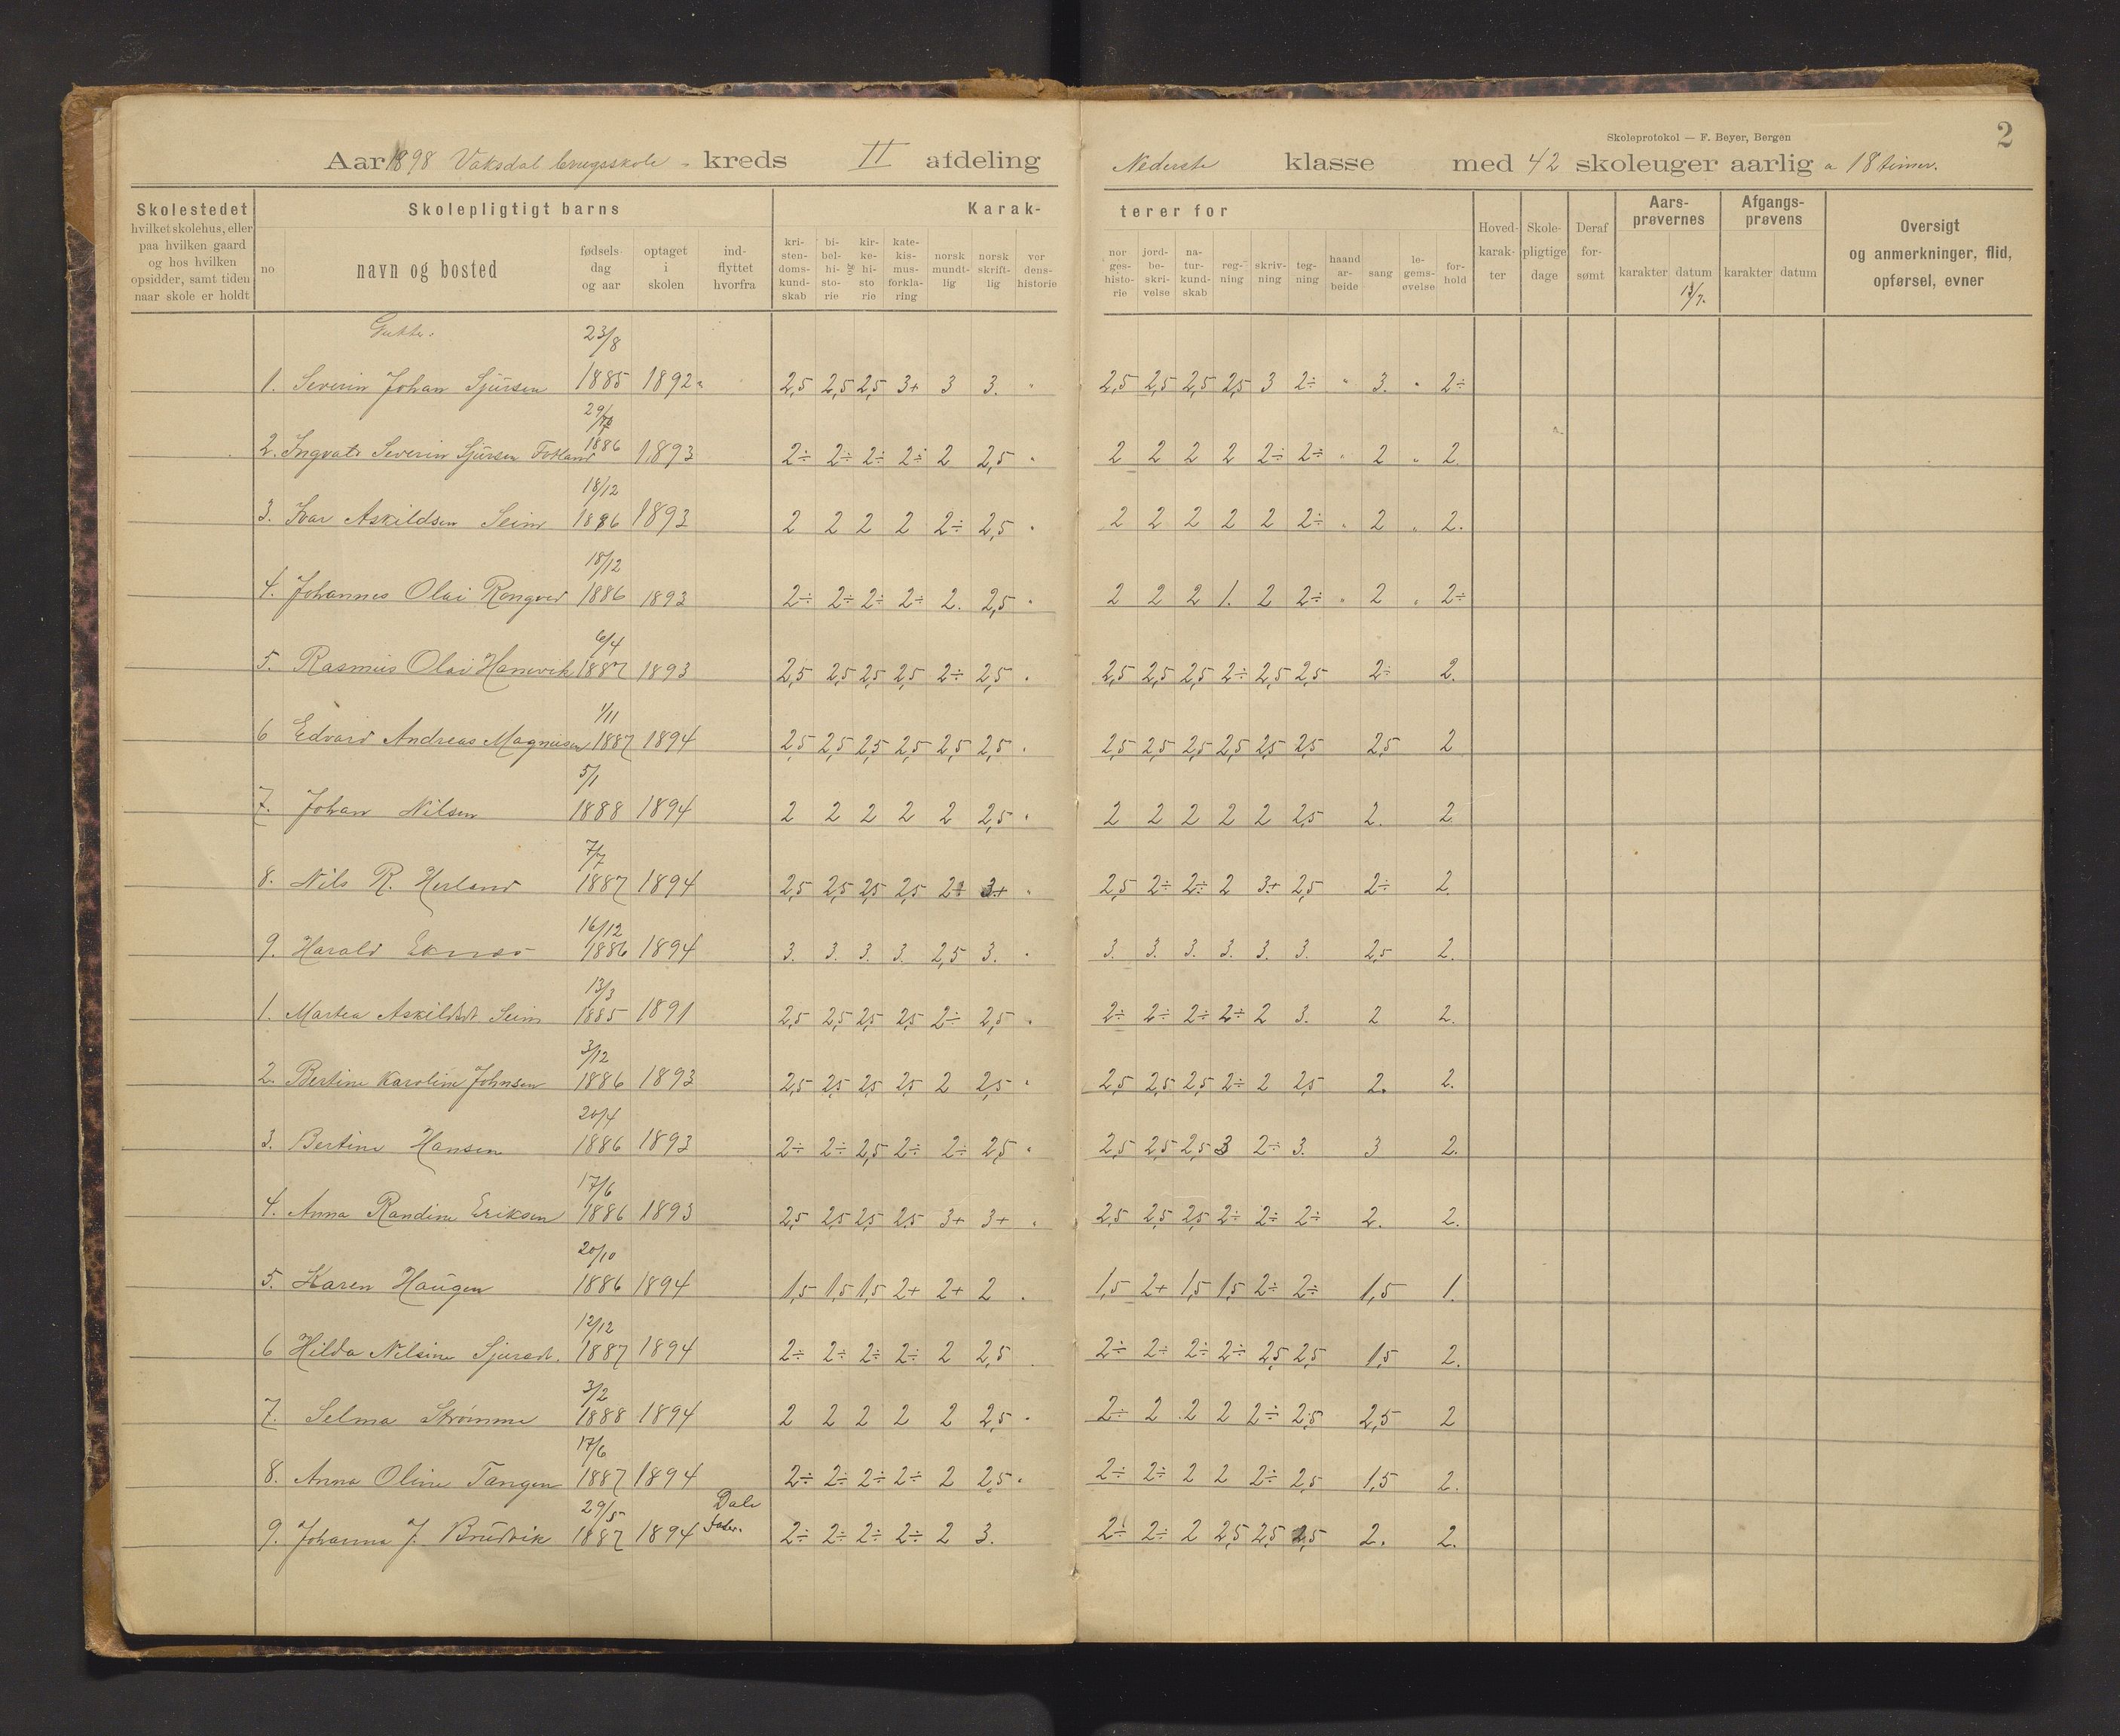 Skoleprotokol — F. Beyer, Bergen
2
Aar 1898 Vaksdal brugsskole - kreds II afdeling Nederste klasse med 42 skoleuger aarlig a 18 timer.
Skolestedet hvilket skolehus, eller paa hvilken gaard og hos hvilken opsidder, samt tiden naar skole er holdt
Skolepligtigt barns
no navn og bosted fødsels- dag og aar optaget i skolen ind- flyttet hvorfra
Karak- terer for
kri- sten- doms- kund- skab bi- bel- hi- sto- rie og kir- ke- hi- sto rie kate- kis- mus- forkla- ring norsk mundt- lig norsk skrift- lig ver dens- historie
nor ges- histo- rie jord- be- skri- velse na- tur- kund- skab reg- ning skriv- ning teg- ning haand ar- beide sang le- gems- øvelse for- hold
Hoved- karak- ter Skole- pligtige dage Deraf for- sømt
Aars- prøvernes karakter datum
Afgangs- prøvens karakter datum
Oversigt og anmerkninger, flid, opførsel, evner
Gutter. 23/8
1. Severin Johan Sjursen 1885 1892 2,5 2,5 2,5 3+ 3 3. 2,5 2,5 2,5 2,5 3 2÷ " 3. " 2÷
2. Severin Sjursen 1886 1893 2÷ 2÷ 2÷ 2÷ 2 2,5 " 2 2 2 2 2÷ 2÷ " 2 " 2.
18/12
3. Ivar Askildsen Seim 1886 1893 2 2 2 2 2÷ 2,5 " 2 2 2 2 2 2÷ " 2 " 2.
18/12
4. Johannes Olai 1886 1893 2÷ 2÷ 2÷ 2÷ 2. 2,5 " 2 2 2 1. 2 2÷ " 2 " 2÷
6/4
5. Rasmus Olai 1887 1893 2,5 2,5 2,5 2,5 2÷ 2,5 " 2,5 2,5 2,5 2÷ 2,5 2,5 2÷ 2.
1/11
6 Edvard Andreas Magnusen 1887 1894 2,5 2,5 2,5 2,5 2,5 2,5 " 2,5 2,5 2,5 2,5 2,5 2,5 2,5 2
5/1
7. Johan Nilsen 1888 1894 2 2 2 2 2 2,5 " 2 2 2 2 2 2,5 2. 2
7/7
8. Nils R. Herland 1887 1894 2,5 2,5 2,5 2,5 2÷ 3+ " 2,5 2÷ 2÷ 2 3+ 2,5 2÷ 2.
16/12
9. Harald Eknes 1886 1894 3. 3. 3. 3. 2,5 3. " 3. 3. 3. 3. 3. 3. 2,5 2.
13/3
1. Martea Askildsdt. Seim 1885 1891 2,5 2,5 2,5 2,5 2÷ 2,5 " 2÷ 2÷ 2÷ 2÷ 2 3. 2 2.
3/12
2. Bertine Karoline Johnsen 1886 1893 2,5 2,5 2,5 2,5 2 2,5 " 2,5 2,5 2,5 2÷ 2 2,5 2. 2.
20/4
3. Bertine Hansen 1886 1893 2÷ 2÷ 2,5 2÷ 2÷ 2,5 " 2,5 2,5 2,5 3 2÷ 3. 3 2.
17/6
4. Anna Randine Eriksen 1886 1893 2,5 2,5 2,5 2,5 3+ 3+ " 2,5 2,5 2,5 2÷ 2÷ 2÷ 2. 2.
20/10
5. Karen Haugen 1886 1894 1,5 1,5 1,5 2+ 2+ 2 " 1,5 2+ 1,5 1,5 2÷ 2÷ 1,5 1.
12/12
6 Hilda Nilsine Sjursdt. 1887 1894 2÷ 2÷ 2÷ 2÷ 2 2,5 2÷ 2÷ 2÷ 2÷ 2,5 2,5 1,5 2.
3/2
7. Selma Strømme 1888 1894 2 2 2 2 2 2,5 " 2÷ 2 2 2 2÷ 2,5 2,5 2
17/6
8. Anna Oline Tangen 1887 1894 2÷ 2÷ 2÷ 2÷ 2 2,5 " 2÷ 2÷ 2 2 2÷ 2,5 1,5 2.
29/5 Dale
9. Johanna J. Brudvik 1887 1894 2÷ 2÷ 2÷ 2÷ 2 3. 2÷ 2÷ 2 2,5 2,5 2,5 2. 2.